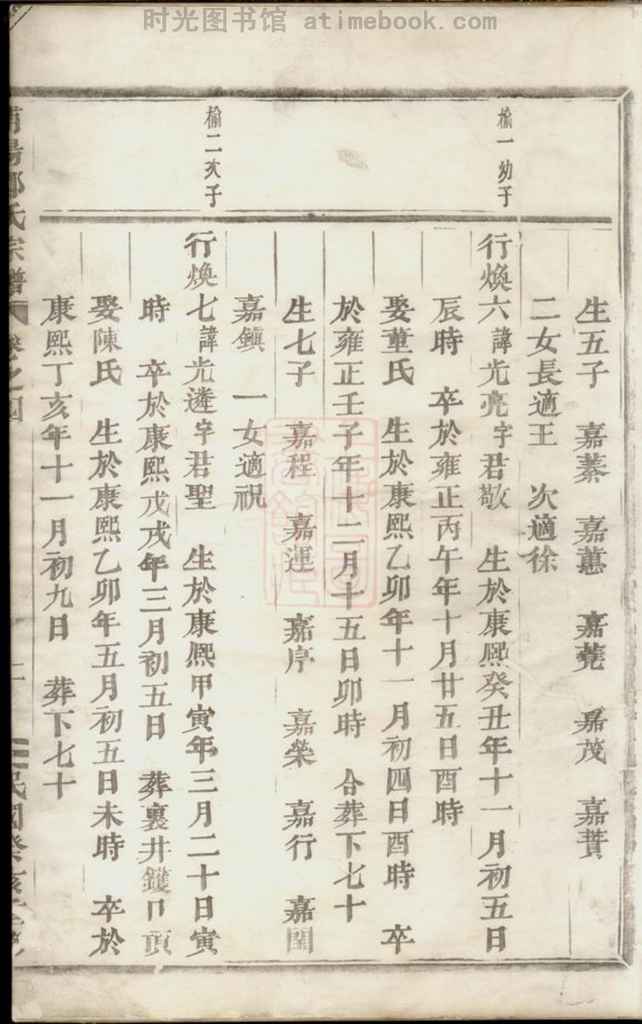 时光图书馆 atimebook.com
榆一幼子
榆二次子
生五子 嘉蓁 嘉蕙 嘉蕘 嘉茂 嘉蕡
二女長適王 次適徐
行煥六諱光亮字君敬 生於康熙癸丑年十一月初五日
辰時 卒於雍正丙午年十月廿五日酉時
娶童氏 生於康熙乙卯年十一月初四日酉時 卒
於雍正壬子年十二月十五日卯時 合葬下七十
生七子 嘉程 嘉運 嘉序 嘉榮 嘉行 嘉閏
嘉鎮 一女適祝
行煥七諱光遴字君聖 生於康熙甲寅年三月二十日寅
時 卒於康熙戊戌年三月初五日 葬裏井鑊口頂
娶陳氏 生於康熙乙卯年五月初五日未時 卒於
康熙丁亥年十一月初九日 葬下七十
陽 氏宗譜 卷之四 民國癸亥